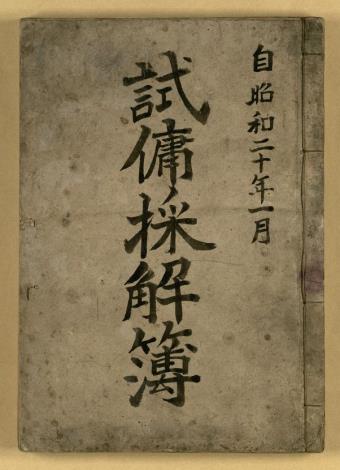 自昭和二十年一月
試傭採解簿